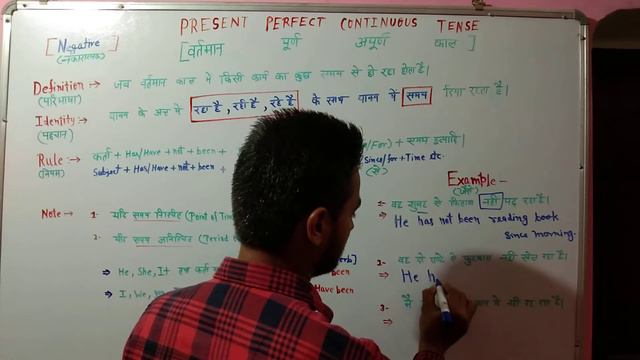 PRESENT PERFECT CONTINUOUS TENSE
[Negative] [वर्तमान पूर्ण अपूर्ण काल]
(नकारात्मक)
Definition:→ जब वर्तमान काल में किसी कार्य का कुछ समय से हो रहा होता है।
(परिभाषा)
Identity:→ वाक्य के अन्त में रहा है, रही है, रहे है के साथ वाक्य में समय दिया रहता है।
(पहचान)
Rule:→ कर्ता + Has/Have + not + been + /For) + समय इत्यादि।
(नियम) Subject + Has/Have + not + been + Since/for + Time etc.
(से)
Example:-
1:- वह सुबह से किताब नहीं पढ़ रहा है।
He has not been reading book
since morning.
Note → 1- यदि समय निश्चित (Point of Time
2- यदि समय अनिश्चित (Period
→ He, She, It been
→ I, We, Have been
2- वह दो घण्टे से नहीं खेल रहा है।
⇒ He h
3- मैं से नहीं रहा हूँ।
⇒